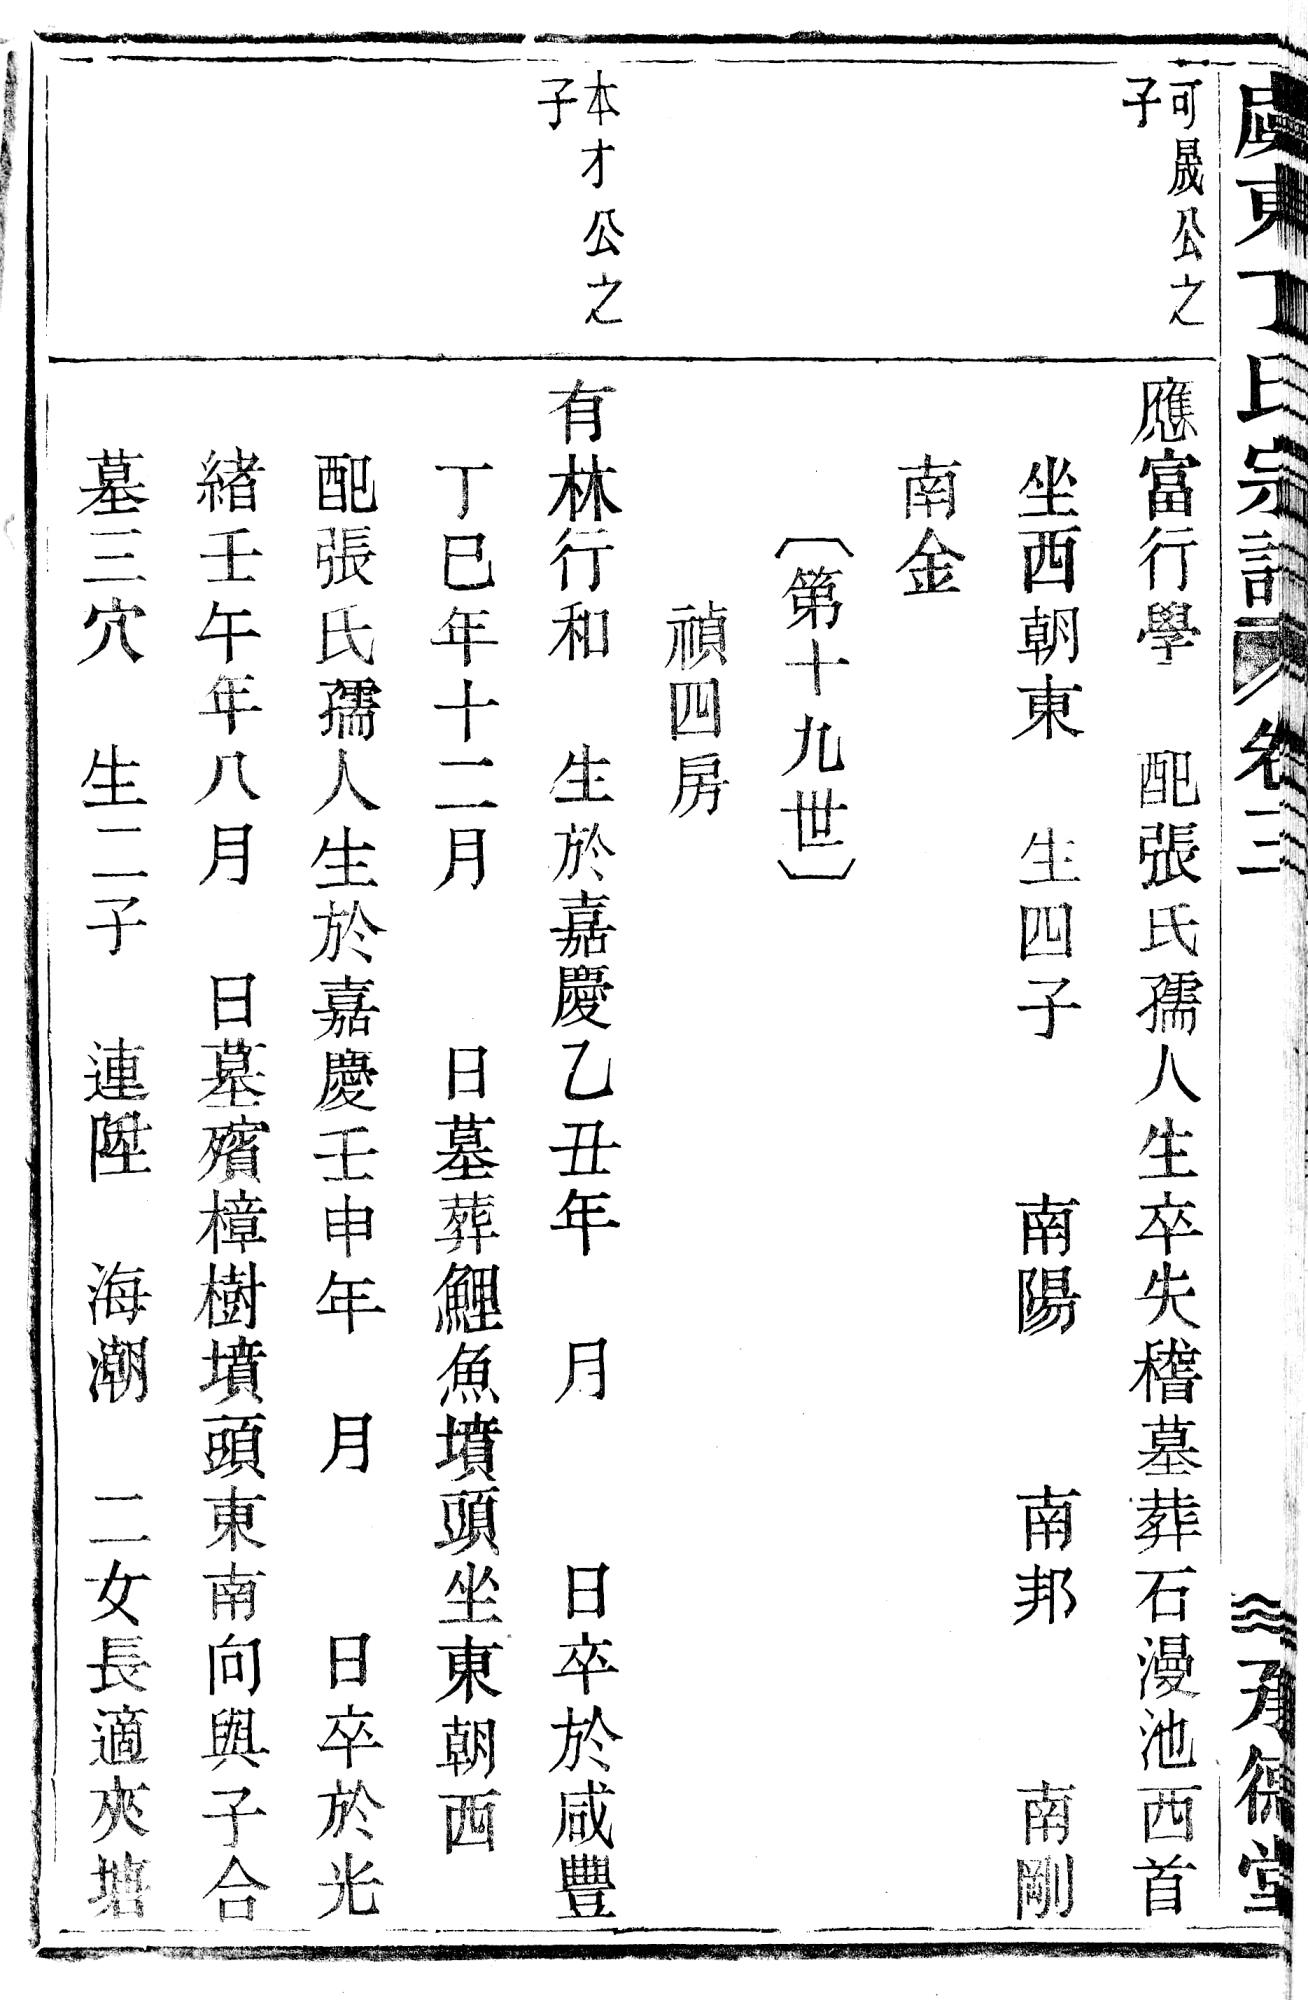 東丁氏宗譜 卷三 承德堂
可晟公之
子
應富行學 配張氏孺人生卒失稽墓葬石漫池西首
坐西朝東 生四子 南陽 南邦 南剛
南金
〔第十九世〕
禎四房
本才公之
子
有林行和 生於嘉慶乙丑年 月 日卒於咸豐
丁巳年十二月 日墓葬鯉魚墳頭坐東朝西
配張氏孺人生於嘉慶壬申年 月 日卒於光
緒壬午年八月 日墓殯樟樹墳頭東南向與子合
墓三穴 生二子 連陞 海潮 二女長適夾塘